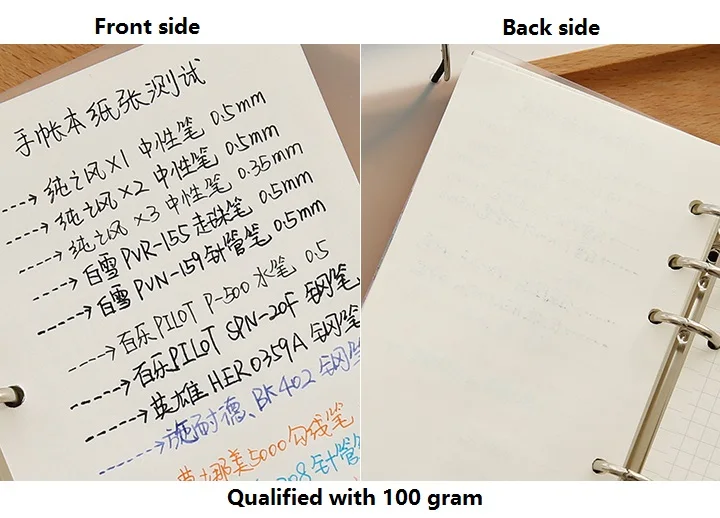 Front side
Back side
手帐本纸张测试
---→ 纯之风X1 中性笔 0.5mm
---→ 纯之风X2 中性笔 0.5mm
---→ 纯之风X3 中性笔 0.35mm
---→ 白雪 PVR-155 走珠笔 0.5mm
---→ 白雪 PVN-159 针管笔 0.5mm
---→ 百乐 PILOT P-500 水笔 0.5
---→ 百乐 PILOT SPN-20F 钢笔
---→ 英雄 HERO 359A 钢笔
---→ 施耐德、BK402 钢笔
5000 勾线笔
针管
Qualified with 100 gram